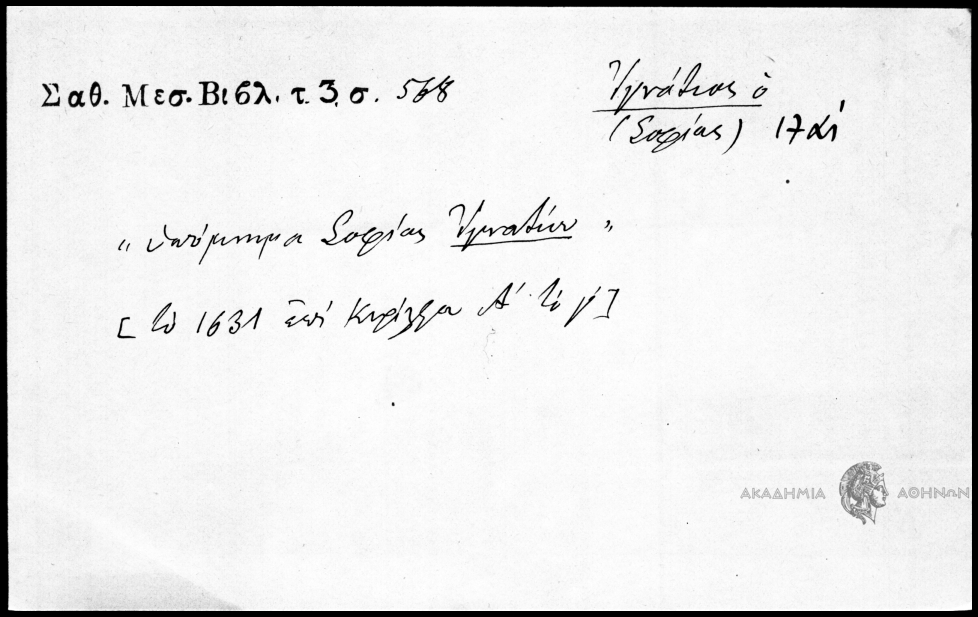 Σαθ. Μεσ. Βιβλ. τ. 3, σ. 568
Ἰγνάτιος ὁ
(Σοφίας) 17 αι
„ ὑπόμνημα Σοφίας Ἰγνατίου „
[ τὸ 1631 ἐπὶ Κυρίλλου Α΄ τὸ γ΄]
ΑΚΑΔΗΜΙΑ ΑΘΗΝΩΝ